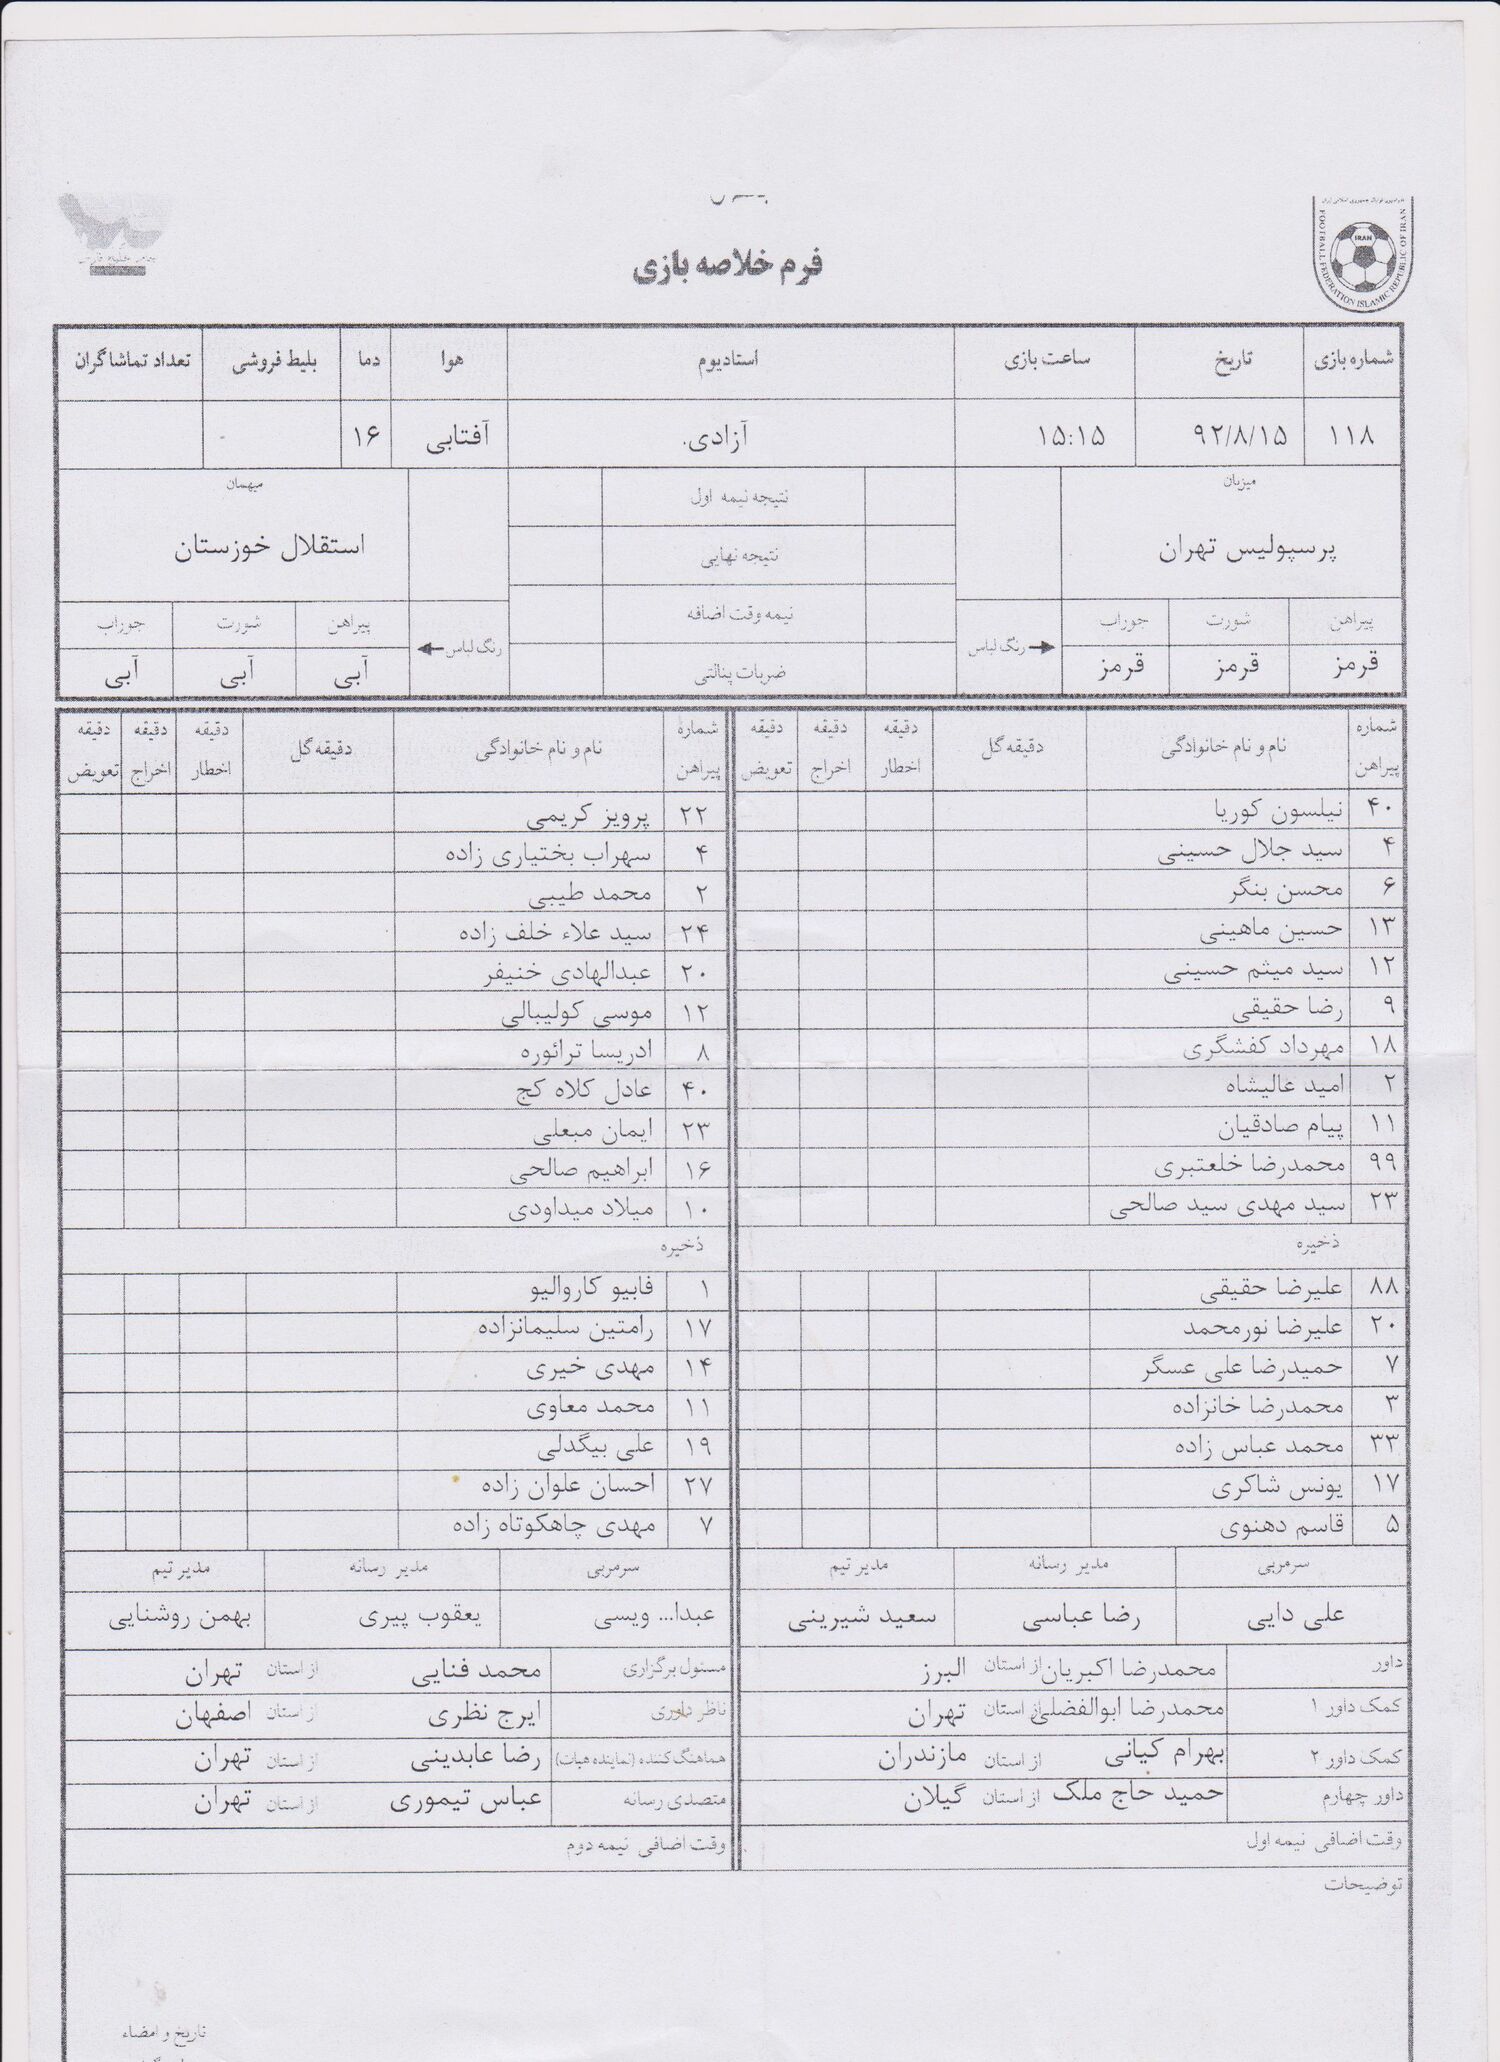 فرم خلاصه بازی
IRAN
FOOTBALL FEDERATION ISLAMIC REPUBLIC OF IRAN
شماره بازی تاریخ ساعت بازی استادیوم هوا دما بلیط فروشی تعداد تماشاگران
۱۱۸ ۹۲/۸/۱۵ ۱۵:۱۵ آزادی. آفتابی ۱۶ -
میزبان نتیجه نیمه اول میهمان
پرسپولیس تهران نتیجه نهایی استقلال خوزستان
پیراهن شورت جوراب رنگ لباس نیمه وقت اضافه رنگ لباس پیراهن شورت جوراب
قرمز قرمز قرمز ضربات پنالتی آبی آبی آبی
شماره پیراهن نام و نام خانوادگی دقیقه گل دقیقه اخطار دقیقه اخراج دقیقه تعویض شماره پیراهن نام و نام خانوادگی دقیقه گل دقیقه اخطار دقیقه اخراج دقیقه تعویض
۴۰ نیلسون کوریا ۲۲ پرویز کریمی
۴ سید جلال حسینی ۴ سهراب بختیاری زاده
۶ محسن بنگر ۲ محمد طیبی
۱۳ حسین ماهینی ۲۴ سید علاء خلف زاده
۱۲ سید میثم حسینی ۲۰ عبدالهادی خنیفر
۹ رضا حقیقی ۱۲ موسی کولیبالی
۱۸ مهرداد کفشگری ۸ ادریسا ترائوره
۲ امید عالیشاه ۴۰ عادل کلاه کج
۱۱ پیام صادقیان ۲۳ ایمان مبعلی
۹۹ محمدرضا خلعتبری ۱۶ ابراهیم صالحی
۲۳ سید مهدی سید صالحی ۱۰ میلاد میداودی
ذخیره ذخیره
۸۸ علیرضا حقیقی ۱ فابیو کاروالیو
۲۰ علیرضا نورمحمد ۱۷ رامتین سلیمانزاده
۷ حمیدرضا علی عسگر ۱۴ مهدی خیری
۳ محمدرضا خانزاده ۱۱ محمد معاوی
۳۳ محمد عباس زاده ۱۹ علی بیگدلی
۱۷ یونس شاکری ۲۷ احسان علوان زاده
۵ قاسم دهنوی ۷ مهدی چاهکوتاه زاده
سرمربی مدیر رسانه مدیر تیم سرمربی مدیر رسانه مدیر تیم
علی دایی رضا عباسی سعید شیرینی عبدا... ویسی یعقوب پیری بهمن روشنایی
داور محمدرضا اکبریان از استان البرز مسئول برگزاری محمد فنایی از استان تهران
کمک داور ۱ محمدرضا ابوالفضلی از استان تهران ناظر داوری ایرج نظری از استان اصفهان
کمک داور ۲ بهرام کیانی از استان مازندران هماهنگ کننده (نماینده هیات) رضا عابدینی از استان تهران
داور چهارم حمید حاج ملک از استان گیلان متصدی رسانه عباس تیموری از استان تهران
وقت اضافی نیمه اول وقت اضافی نیمه دوم
توضیحات
تاریخ و امضاء